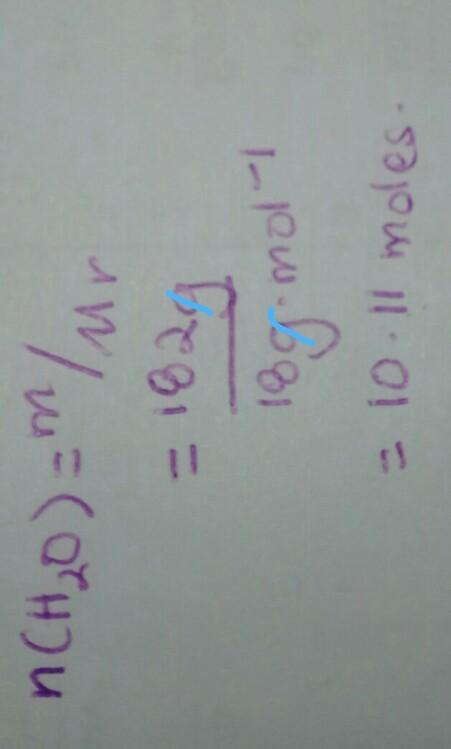 n(H₂O) = m/Mr
= 182g
18g.mol⁻¹
= 10.11 moles.